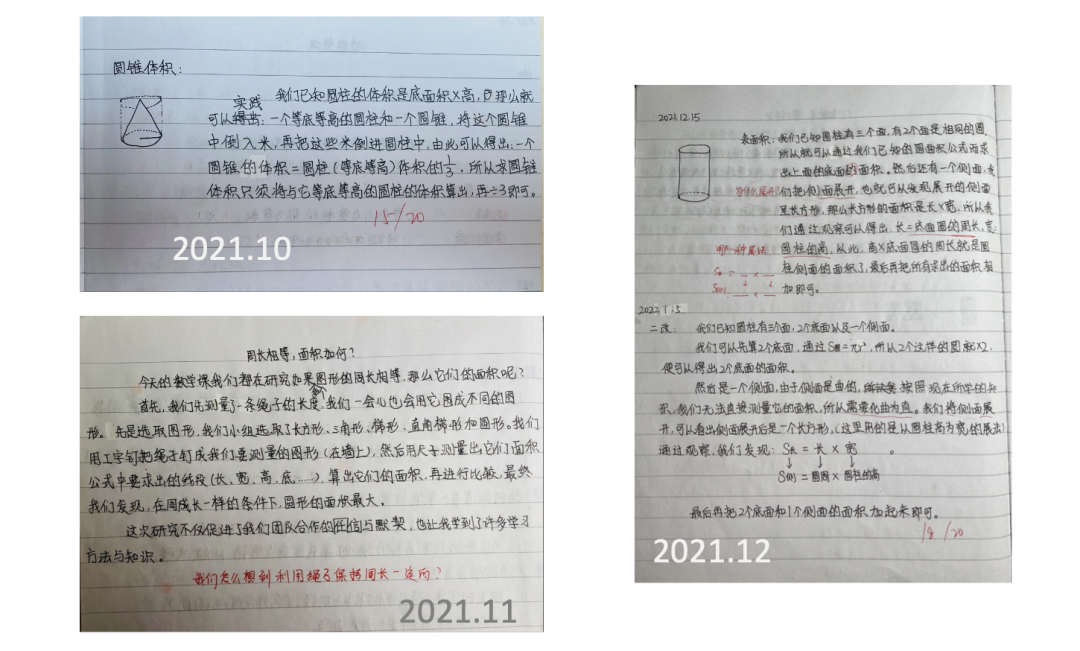 圆锥体积：
实践 我们已知圆柱的体积是底面积×高，那么就
可以得出：一个等底等高的圆柱和一个圆锥，将这个圆锥
中倒入米，再把这些米倒进圆柱中，由此可以得出：一个
圆锥的体积=圆柱（等底等高）体积的1/3，所以求圆锥
体积只须将与它等底等高的圆柱的体积算出，再÷3即可。
15/20
2021.10
周长相等，面积如何？
今天的数学课我们都在研究如果图形的周长相等，那么它们的面积呢？
首先，我们先测量了一条绳子的长度，我们一会儿也会用它围成不同的图
形。先是选取图形，我们小组选取了长方形、三角形、梯形、直角梯形和圆形。我们
用工字钉把绳子钉成我们要测量的图形（在墙上），然后用尺子测量出它们面积
公式中要求出的线段（长、宽、高、底……），算出它们的面积，再进行比较，最终
我们发现，在周长一样的条件下，圆形的面积最大。
这次研究不仅促进了我们团队合作的信与默契，也让我学到了许多学习
方法与知识。
我们怎么想到利用绳子保持周长一定的？
2021.11
2021.12.15
表面积：我们已知圆柱有三个面，有2个面是相同的圆，
所以就可以通过我们已知的圆面积公式而求
出上面的底面的面积。然后还有一个侧面，我
为什么展开？们把侧面展开，也就可以发现展开的侧面
是长方形，那么长方形的面积是长×宽，所以我
们通过观察可以得出，长=底面圆的周长，宽=
哪一种展法 圆柱的高，从此，高×底面圆的周长就是圆
柱侧面的面积了，最后再把所有求出的面积相
加即可。
2022.1.5
二改：我们已知圆柱有三个面，2个底面以及一个侧面。
我们可以先算2个底面，通过S圆=πr²，所以2个这样的圆就×2，
便可以得出2个底面的面积。
然后是一个侧面，由于侧面是曲的，按照现在所学的知
识，我们无法直接测量它的面积，所以需要化曲为直。我们将侧面展
开，可以看出侧面展开后是一个长方形，（这里用的是以圆柱高为宽的展法）
通过观察，我们发现：S长 = 长 × 宽。
↓ ↓ ↓
S侧 = 圆周 × 圆柱的高
最后再把2个底面和1个侧面的面积加起来即可。
18/20
2021.12